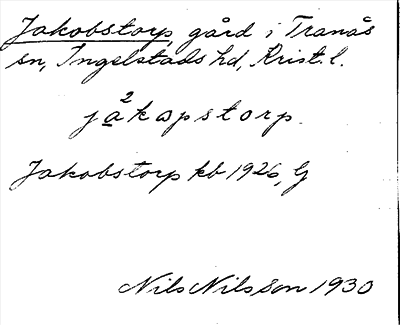 Jakobstorp, gård i Tranås
sn, Ingelstads hd, Krist. l.
ja²kɷpstorp.
Jakobstorp kb 1926, G
Nils Nilsson 1930